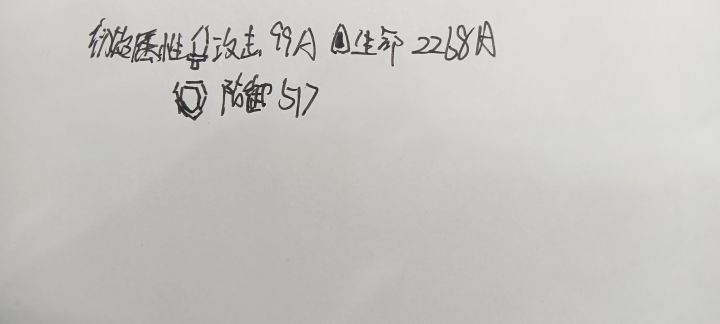 属性 攻击 99A 生命 2268A
防御 517